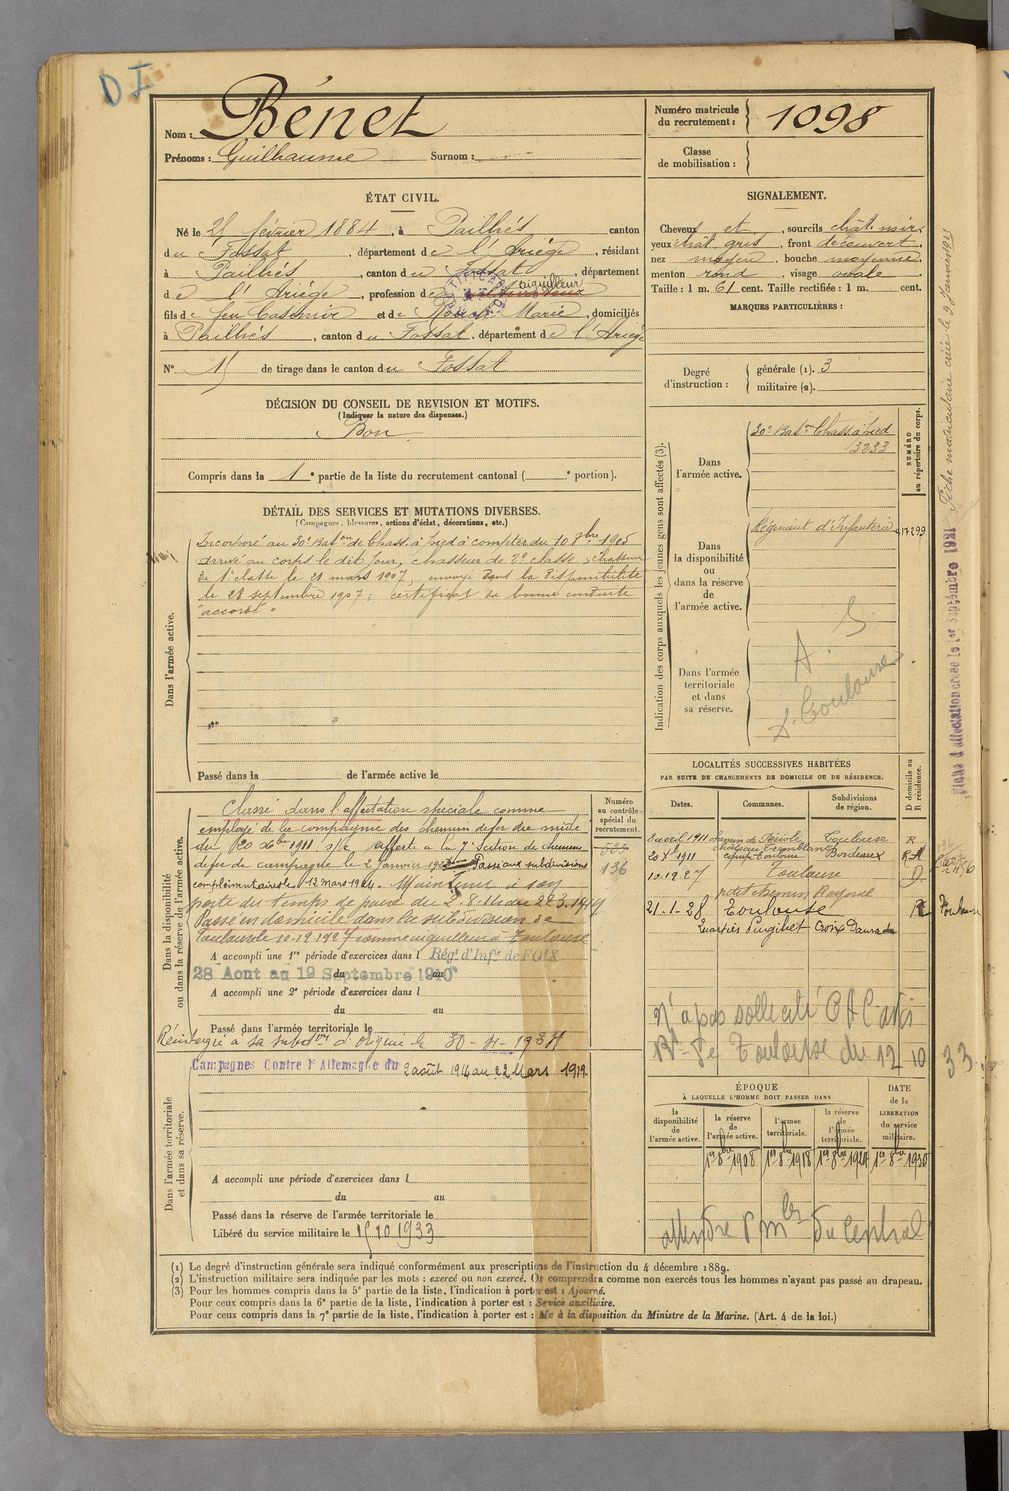 D I
Nom : Bénet
Prénoms : Guilhaume Surnom :
Numéro matricule du recrutement : 1098
Classe de mobilisation :
ÉTAT CIVIL.
Né le 25 février 1884, à Pailhès canton
du Fossat, département de l'Ariège, résidant
à Pailhès, canton du Fossat, département
de l'Ariège, profession de cultivateur aiguilleur
fils de feu Casimir et de Marie, domiciliés
à Pailhès, canton du Fossat, département de l'Ariège
N° 15 de tirage dans le canton du Fossat
DÉCISION DU CONSEIL DE REVISION ET MOTIFS.
(Indiquer la nature des dispenses.)
Bon
Compris dans la 1e partie de la liste du recrutement cantonal ( e portion).
SIGNALEMENT.
Cheveux et, sourcils chât. noirs
yeux chât. gris, front découvert,
nez moyen, bouche moyenne
menton rond, visage ovale
Taille : 1 m. 61 cent. Taille rectifiée : 1 m. cent.
MARQUES PARTICULIÈRES :
Degré d'instruction : générale (1). 3
militaire (2).
DÉTAIL DES SERVICES ET MUTATIONS DIVERSES.
(Campagnes, blessures, actions d'éclat, décorations, etc.)
Dans l'armée active.
Incorporé au 30e Baton de Chass. à pied à compter du 10 8bre 1905
arrivé au corps le dit jour, chasseur de 2e classe, chasseur
de 1e classe le 21 mars 1907, envoyé dans la disponibilité
le 28 septembre 1907; certificat de bonne conduite
"accordé"
Passé dans la de l'armée active le
Indication des corps auxquels les jeunes gens sont affectés (3).
NUMÉRO au répertoire du corps.
Dans l'armée active.
30e Baton Chass. à pied
3233
Dans la disponibilité ou dans la réserve de l'armée active.
Régiment d'Infanterie
Dans l'armée territoriale et dans sa réserve.
A.
Toulouse
Fiche matriculaire créée le 9 Janvier 1925
Fiche d'affectation créée le 1er septembre 1921
Dans la disponibilité ou dans la réserve de l'armée active.
Numéro au contrôle spécial du recrutement.
136
Classé dans l'affectation spéciale comme
employé de la compagnie des chemin de fer du midi
du 20 Xbre 1911 s/c affecté à la 7e section de chemin
de fer de campagne le 2 janvier Passé aux subdivisions
complémentaires le 12 mars 1924. Maintenu à son
poste du temps de paix du 2.8.14 au 22.3.1919
Passe en domicile dans la subdivision de
Toulouse le 10.12.1927 comme aiguilleur à Toulouse
A accompli une 1re période d'exercices dans l Rég. d'Infie de FOIX
28 Aout au 19 Septembre 1910
A accompli une 2e période d'exercices dans l
du au
Passé dans l'armée territoriale le
Réintégré à sa subdon d'origine le
Dans l'armée territoriale et dans sa réserve.
Campagnes Contre l'Allemagne du 2 août 1914 au 22 Mars 1919.
A accompli une période d'exercices dans l
du au
Passé dans la réserve de l'armée territoriale le
Libéré du service militaire le 15 10 1933
LOCALITÉS SUCCESSIVES HABITÉES
PAR SUITE DE CHANGEMENTS DE DOMICILE OU DE RÉSIDENCE.
Dates. Communes. Subdivisions de région. D domicile ou R résidence.
8 avril 1911 Toulouse R
20 X 1911 Bordeaux R
10.12.27 Toulouse D.
21-1-28 Toulouse Toulouse
Croix Daurade
N'a pas sollicité
Toulouse du 12 10 33
ÉPOQUE
À LAQUELLE L'HOMME DOIT PASSER DANS
la disponibilité de l'armée active.
la réserve de l'armée active.
l'armée territoriale.
la réserve de l'armée territoriale.
DATE de la LIBÉRATION du service militaire.
1er 8bre 1908 1er 8bre 1918 1er 8bre 1924 1er 8bre 1930
(1) Le degré d'instruction générale sera indiqué conformément aux prescriptions de l'instruction du 4 décembre 1889.
(2) L'instruction militaire sera indiquée par les mots : exercé ou non exercé. On comprendra comme non exercés tous les hommes n'ayant pas passé au drapeau.
(3) Pour les hommes compris dans la 5e partie de la liste, l'indication à porter est : Ajourné.
Pour ceux compris dans la 6e partie de la liste, l'indication à porter est : Service auxiliaire.
Pour ceux compris dans la 7e partie de la liste, l'indication à porter est : Mis à la disposition du Ministre de la Marine. (Art. 4 de la loi.)